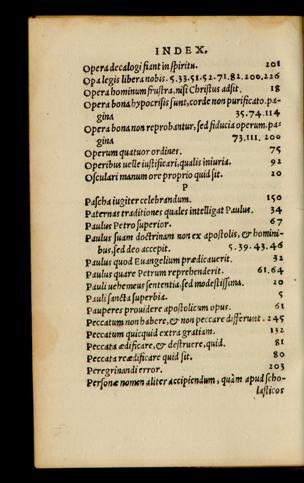 INDEX.
Opera decalogi fiant in spiritu. 201
Opa legis libera nobis. 5.33.51.52.71.82.200.226
Opera hominum frustra, nisi Christus adsit. 18
Opera bona hypocrisis sunt, corde non purificato. pa-
gina 35.74.114
Opera bona non reprobantur, sed fiducia operum. pa-
gina 73.111.200
Operum quatuor ordines. 75
Operibus uelle iustificari, qualis iniuria. 92
Osculari manum ore proprio quid sit. 20
P
Pascha iugiter celebrandum. 150
Paternas traditiones quales intelligat Paulus. 34
Paulus Petro superior. 67
Paulus suam doctrinam non ex apostolis, & homini-
bus, sed deo accepit. 5.39.43.46
Paulus quod Euangelium prædicauerit. 32
Paulus quare Petrum reprehenderit. 61.64
Pauli uehemens sententia, sed modestissima. 20
Pauli sancta superbia. 5
Pauperes prouidere apostolicum opus. 61
Peccatum non habere, & non peccare differunt. 245
Peccatum quicquid extra gratiam. 132
Peccata ædificare, & destruere, quid. 81
Peccata reædificare quid sit. 80
Peregrinandi error. 203
Personæ nomen aliter accipiendum, quàm apud scho-
lasticos